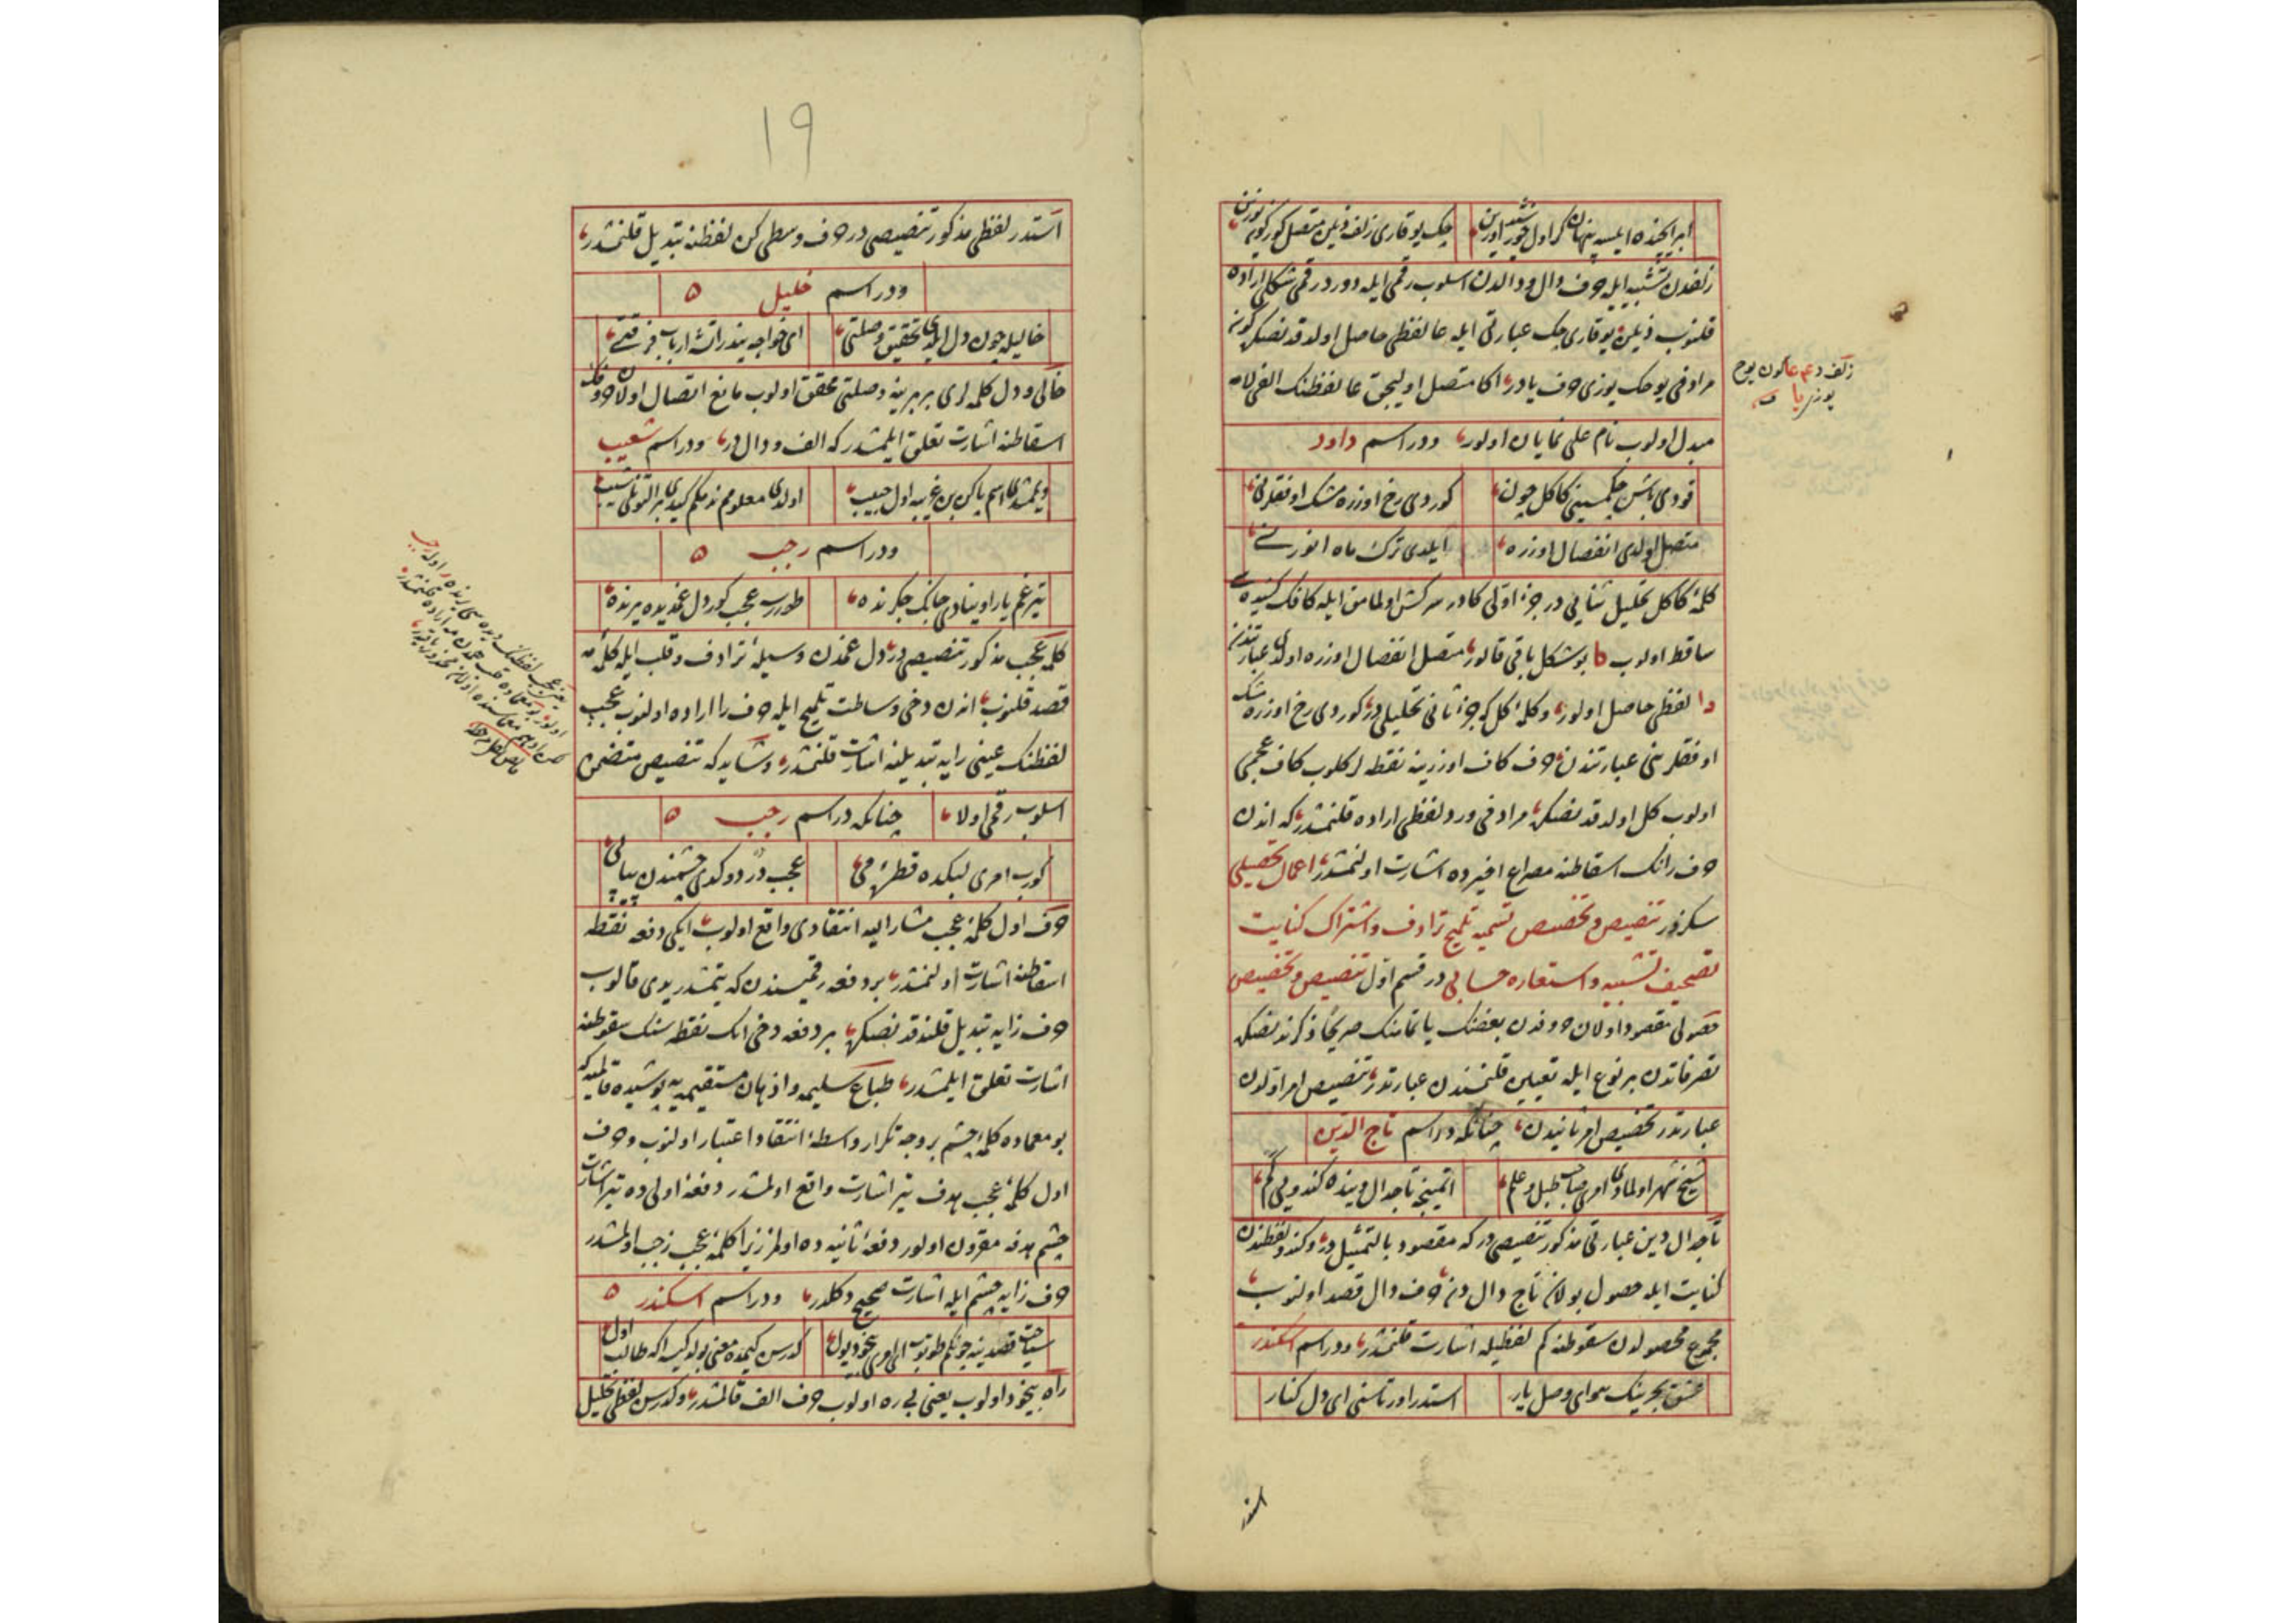 زلفدن تشبیه ایله حرف دال و دالدن اسلوب رقمی ایله دورد رقمی شکلی اراده
قلنوب ذیلین یوقاری چک عبارتی ایله عا لفظی حاصل اولدقدنصکره کونه
مرادفی یوحک یوزی حرف یادر اکا متصل اولیجق عا لفظنک الفی لامه
مبدل اولوب نام علی نمایان اولور ودر اسم داود
قودی باشن چکمسینی کاکل چون
کوردی رخ اوزره مشک اوفقلرنی
متصل اولدی انفصال اوزره
ایلدی ترک ماه انورنی
کلمهٔ کاکل تحلیل ثنائیدر جزء اولی کادر سرکش اولمامق ایله کافک کشیده سی
ساقط اولوب دا بو شکل باقی قالور متصل انفصال اوزره اولدی عبارتندن
دا لفظی حاصل اولور وکلمهٔ کل که جزء ثانی تحلیلیدر کوردی رخ اوزره مشک
اوفقلرینی عبارتندن حرف کاف اوزرینه نقطه لر کلوب کاف عجمی
اولوب کل اولدقدنصکره مرادفی ورد لفظی اراده قلنمشدر که اندن
حرف رانک اسقاطنه مصراع اخیرده اشارت اولنمشدر اعمال تحصیلی
سکزدر تنصیص و تخصیص تسمیه تلمیح ترادف و اشتراک کنایت
تصحیف تشبیه و استعاره حسابی در قسم اول تنصیص و تخصیص
حصولی مقصود اولان حروفدن بعضنک یا تمامنک صریحا ذکرندنصکره
تصرفاتدن بر نوع ایله تعیین قلنمسندن عبارتدر تنصیص امر اولدن
عبارتدر تخصیص امر ثانیدن چنانکه در اسم تاج الدین
شیخ شهر اولمادی امری صاحب طبل و علم
اتمینجه تاجدال دینده کندویی کم
تاجدال دین عبارتی مذکور تنصیصیدر که مقصود بالتمثیلدر وکندو لفظندن
کنایت ایله حصول بولان تاج دال دن حرف دال قصد اولنوب
مجموع محصولدن سقوطنه کم لفظیله اشارت قلنمشدر ودر اسم اسکندر
عشق بحرینک هوای وصل یار
استدر اورتاسنی ای دل کنار
استدر
زلف د ٤ عا کون یوح
یوزی یا
١٩
استدر لفظی مذکور تنصیصیدر حرف وسطی کن لفظنه تبدیل قلنمشدر
ودر اسم خلیل
خالیله چون دل ایلدی تحقیق وصلتی
ای خواجه یندر آتشه ارباب فرقتی
خالی و دل کلمه لری بربرینه وصلتی محقق اولوب مانع اتصال اولان حروفک
اسقاطنه اشارت تعلق ایلمشدر که الف و دالدر ودر اسم شعیب
اولدی معلومم ندیکم کیدی بر التونلی شیب
ودر اسم رجب
تیر غم یار اوینادی جانک جکرنده
طورر عجب کور دل غمدیده یرنده
کلمهٔ عجب مذکور تنصیصیدر دل غمدن وسیلهٔ ترادف و قلب ایله کلمهٔ مه
قصد قلنوب اندن دخی وساطت تلمیح ایله حرف را اراده اولنوب عجب
لفظنک عینی رایه تبدیلنه اشارت قلنمشدر وشاید که تنصیص متضمن
اسلوب رقمی اولا چنانکه در اسم رجب
کورب امری لبکده قطرهٔ می
عجب در دوکدی چشمندن پیاپی
حرف اول کلمهٔ عجب مشار الیه انتقادی واقع اولوب ایکی دفعه نقطه
اسقاطنه اشارت اولنمشدر بر دفعه رقمیسندن که یتمشدر یدی قالوب
حرف زایه تبدیل قلندقدنصکره بر دفعه دخی انک نقطه سنک سقوطنه
اشارت تعلق ایلمشدر طباع سلیمه واذهان مستقیمه یه پوشیده قالمیه که
بو معماده کلمهٔ چشم بر وجه تکرار واسطهٔ انتقاد اعتبار اولنوب وحرف
اول کلمهٔ عجب هدف تیر اشارت واقع اولمشدر دفعهٔ اولی ده تیر اشارت
چشم هدفه مقرون اولور دفعهٔ ثانیه ده اولمز زیرا کلمهٔ عجب زجب اولمشدر
حرف زایه چشم ایله اشارت صحیح دکلدر ودر اسم اسکندر
راه بیخود اولوب یعنی بی ره اولوب حرف الف قالمشدر وکدرس لفظی تحلیل